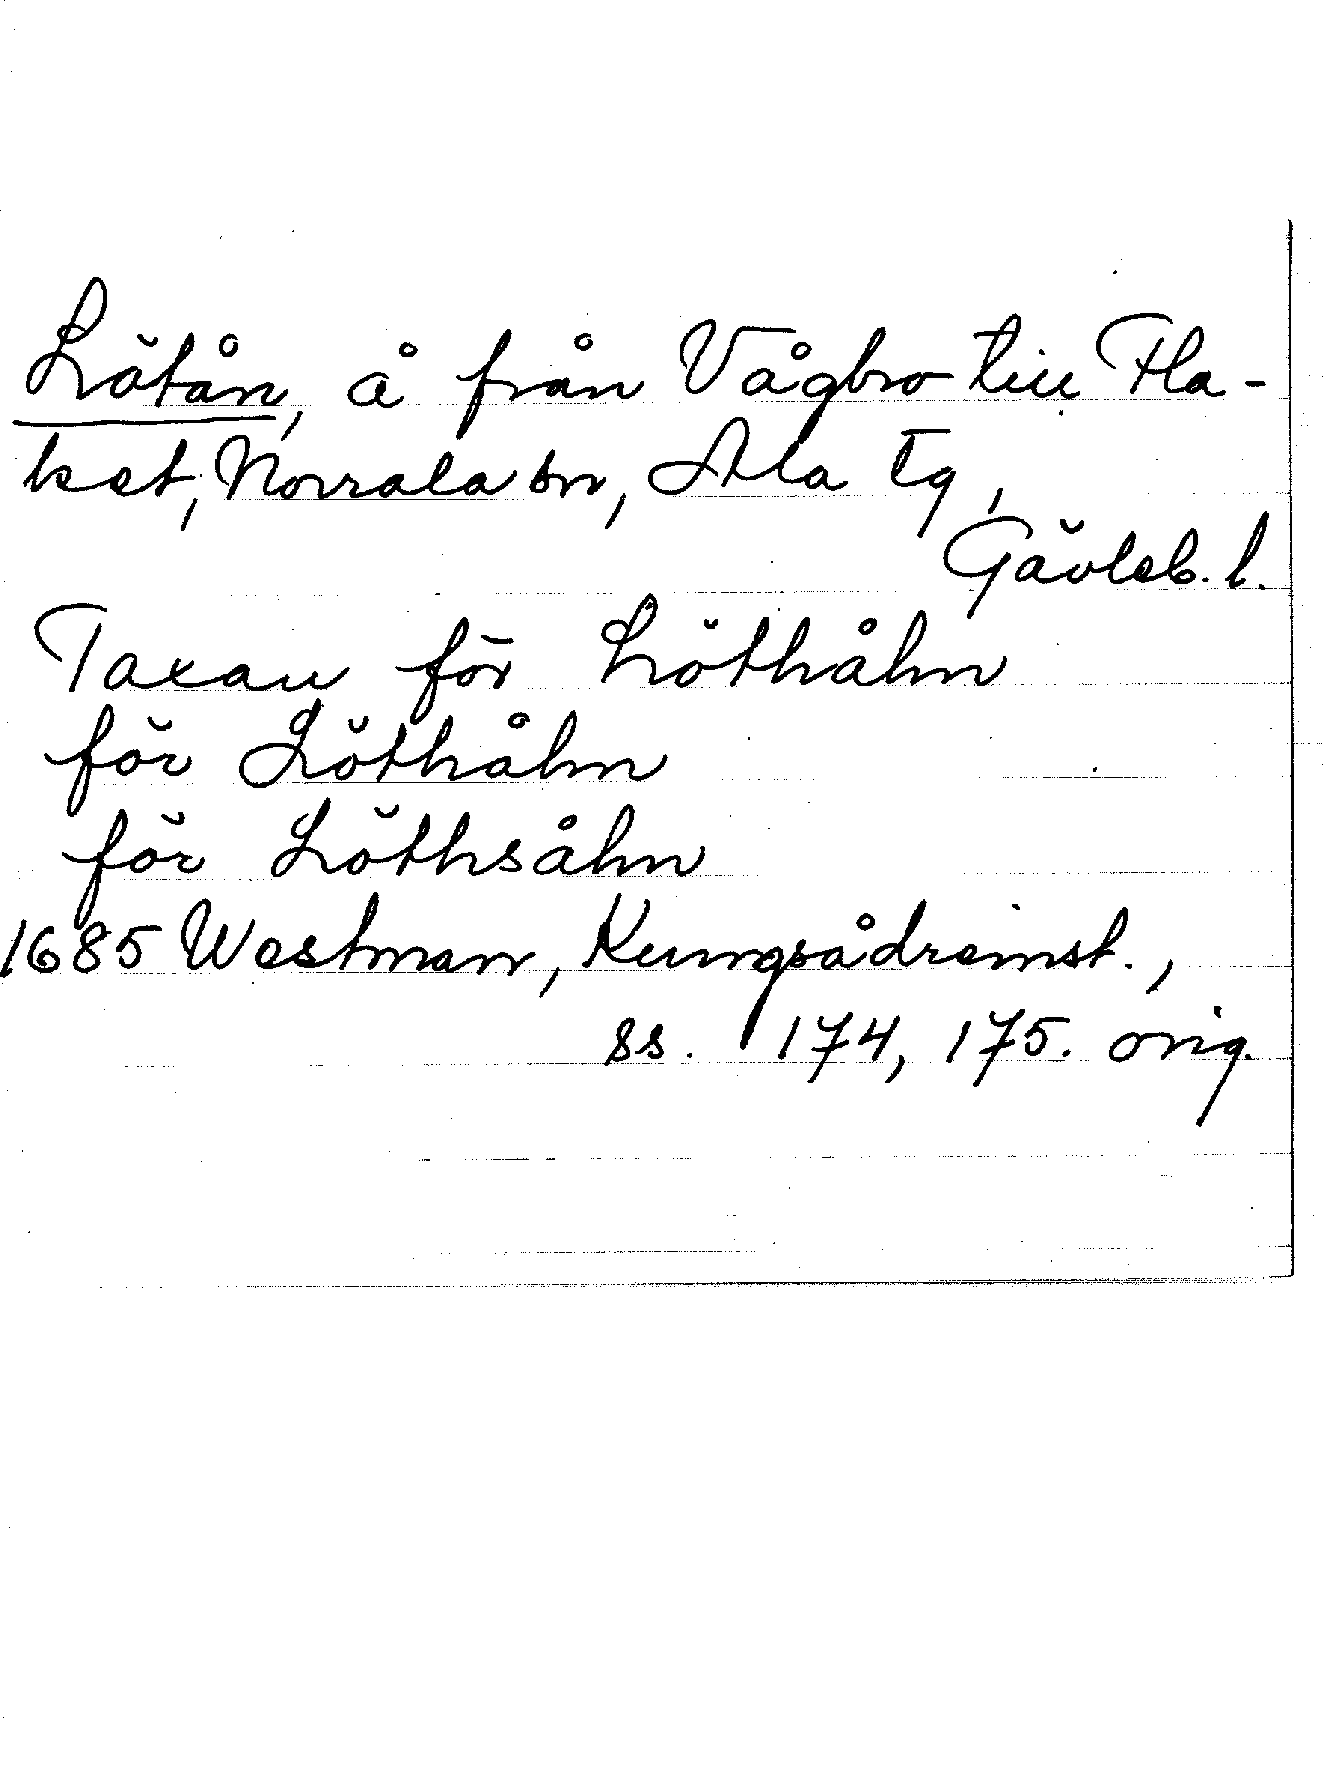 Lötån, å från Vågbro till Fla-
ket, Norrala sn, Ala tg,
Gävleb. l.
Taxan för Löthåhn
för Löthåhn
för Löthsåhn
1685 Westman, Kungsådreinst.,
ss. 174, 175. orig.